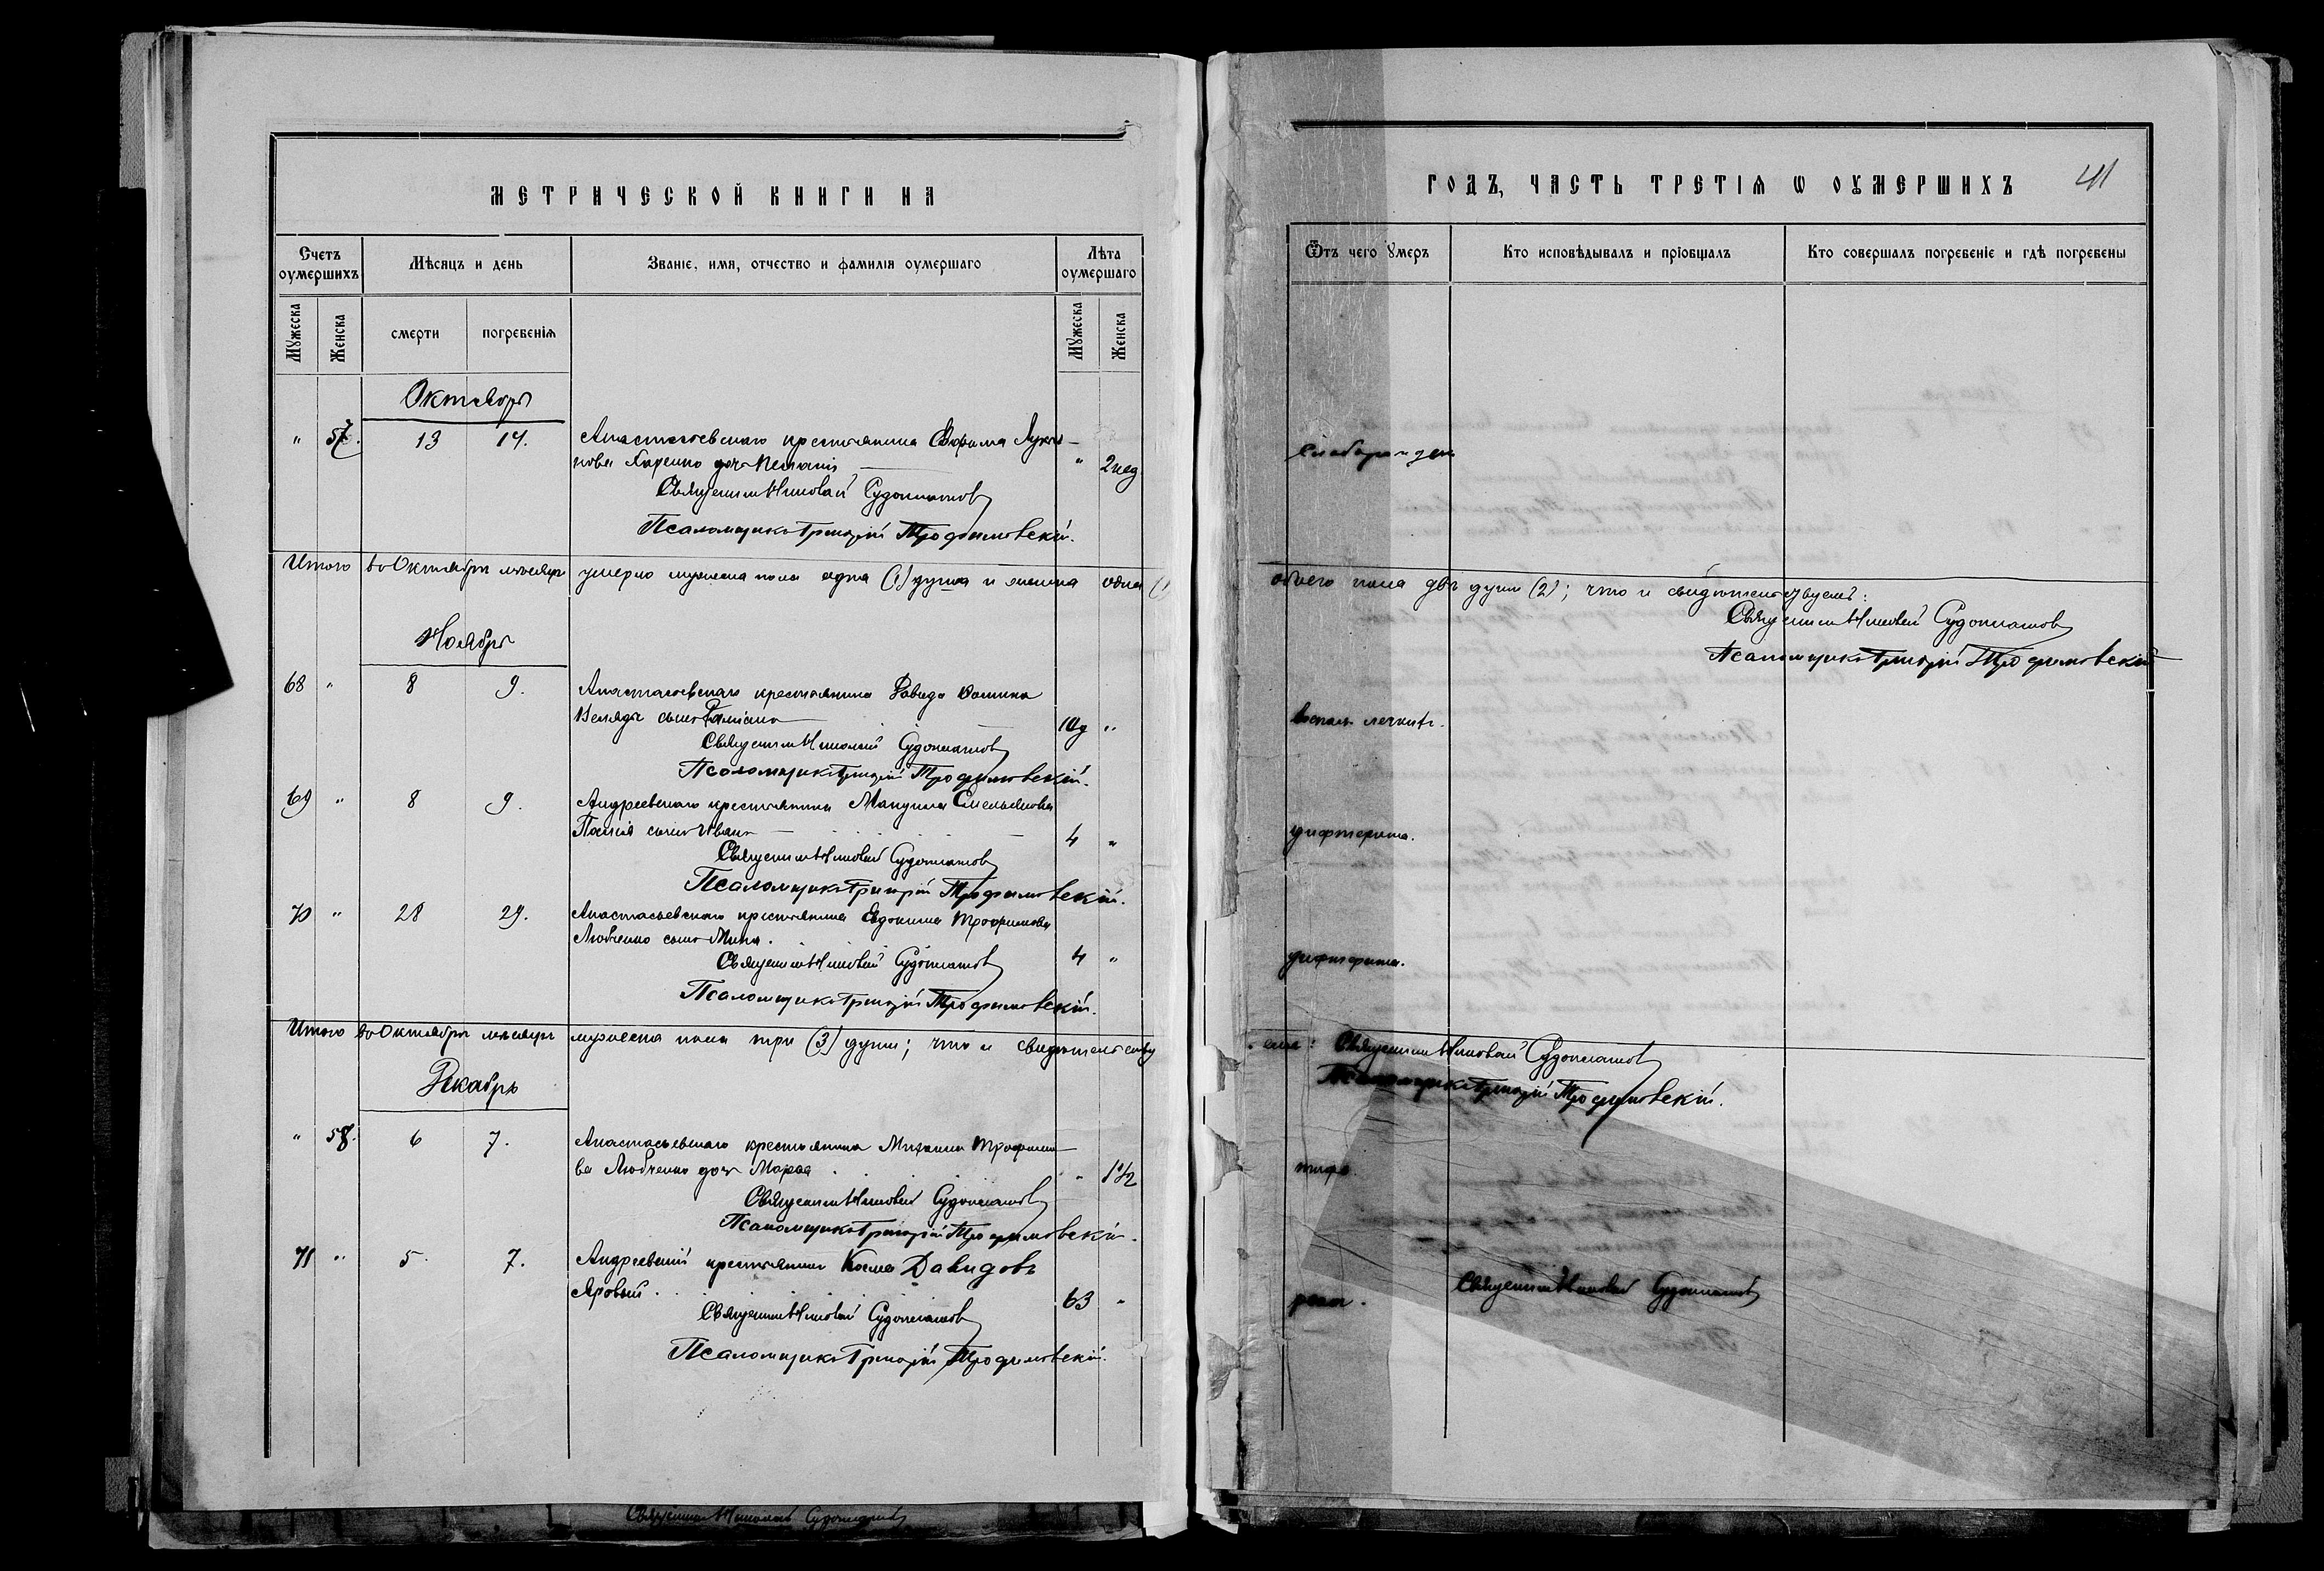 МЕТРИЧЕСКОЙ КНИГИ НА
Счетъ оумершихъ
Мѣсяцъ и день
Званіе, имя, отчество и фамилія оумершаго
Лѣта оумершаго
Мꙋжеска
Женска
смерти
погребенія
Мꙋжеска
Женска
Октябрь
" 57. 13 14. Анастасьевскаго крестьянина
дочь " 2 нед
Священникъ Николай Судоплатовъ
Псаломщикъ Григорій Трофимовскій.
Итого въ Октябрѣ мѣсяцѣ умерло мужеска пола одна (1) душа и женска одна (1
Ноябрь
68 " 8 9. Анастасьевскаго крестьянина Давида
сынъ "
Священникъ Николай Судоплатовъ
Псаломщикъ Григорій Трофимовскій.
69 " 8 9. Андреевскаго крестьянина Емельянова
сынъ Иванъ 4 "
Священникъ Николай Судоплатовъ
Псаломщикъ Григорій Трофимовскій.
70 " 28 29. Анастасьевскаго крестьянина Евдокима Трофимова
Любченко сынъ Мина. 4 "
Священникъ Николай Судоплатовъ
Псаломщикъ Григорій Трофимовскій.
Итого въ Октябрѣ мѣсяцѣ мужеска пола три (3) души; что и свидѣтельству
Декабрь
" 58. 6 7. Анастасьевскаго крестьянина Михаила Трофимо
ва Любченко дочь " 1 1/2
Священникъ Николай Судоплатовъ
Псаломщикъ Григорій Трофимовскій.
71 " 5. 7. Андреевскій крестьянинъ Косма Давидовъ
Яровый. 63 "
Священникъ Николай Судоплатовъ
Псаломщикъ Григорій Трофимовскій.
Священникъ Николай Судоплатовъ
ГОДЪ, ЧАСТЬ ТРЕТІЯ Ѡ ОУМЕРШИХЪ
41
Ѿтъ чего ꙋмеръ
Кто исповѣдывалъ и пріобщалъ
Кто совершалъ погребеніе и гдѣ погребены
обоего пола двѣ души (2); что и свидѣтельствуемъ:
Священникъ Николай Судоплатовъ
Псаломщикъ Григорій Трофимовскій
воспал. легкихъ.
дифтерита.
дифтерита.
емъ: Священникъ Николай Судоплатовъ
Псаломщикъ Григорій Трофимовскій.
Священникъ Николай Судоплатовъ